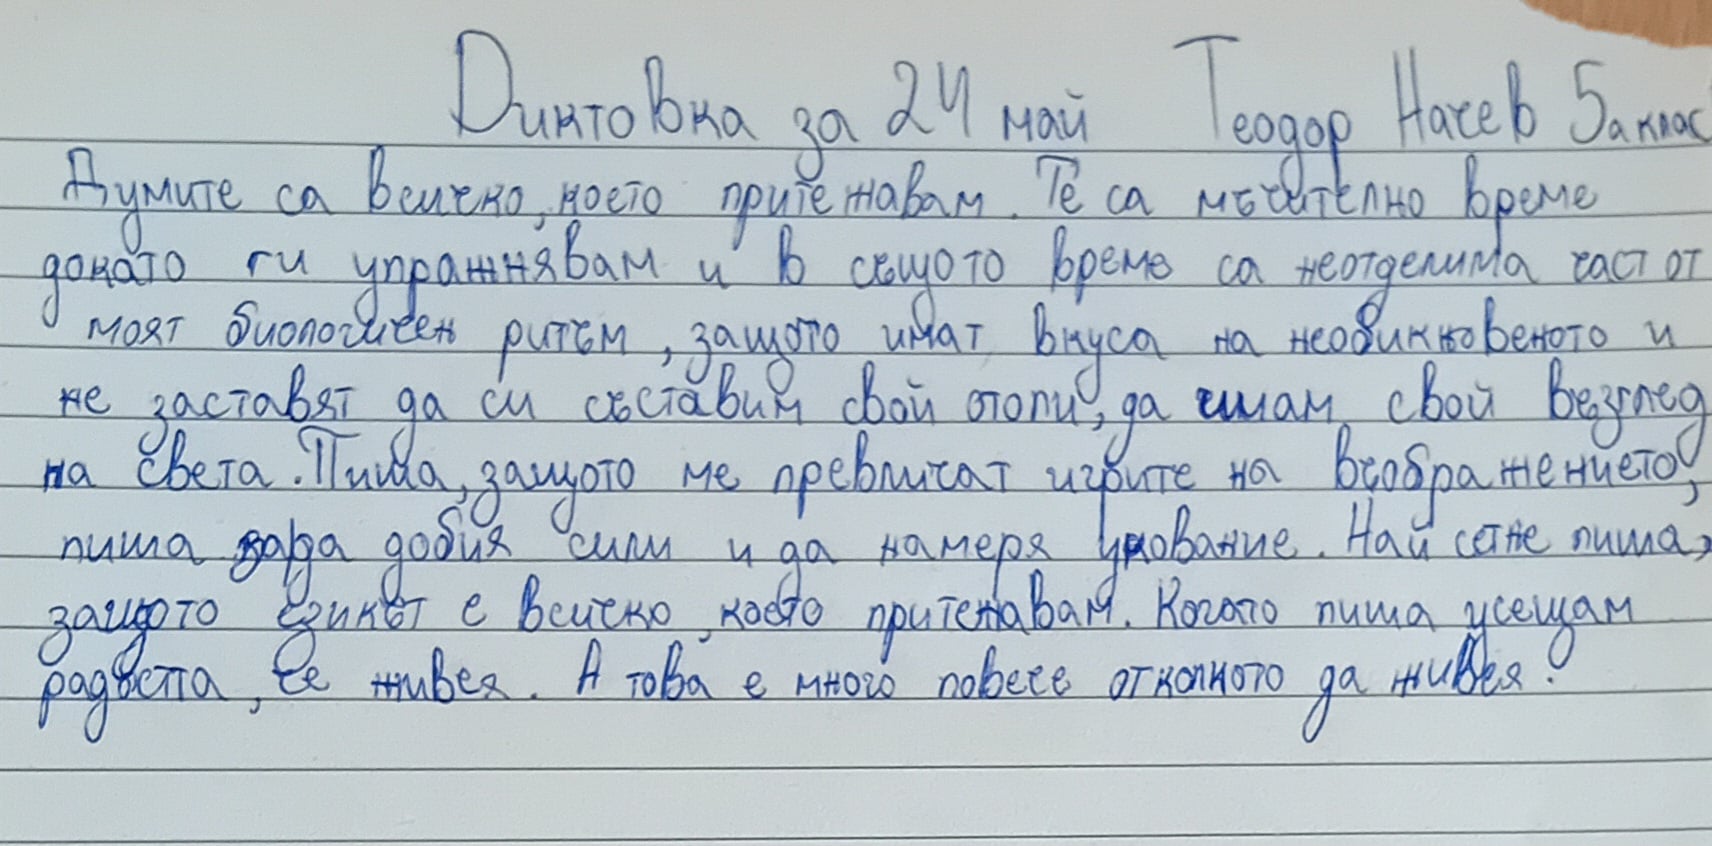 Диктовка за 24 май Теодор Начев 5а клас
Думите са всичко, което притежавам. Те са мъчително време
докато ги упражнявам и в същото време са неотделима част от
моят биологичен ритъм, защото имат вкуса на необикновеното и
не заставят да си съставим свой отопи, да имам свой възглед
на света. Пиша, защото ме превличат игрите на въображението,
пиша зарда добия сили и да намеря упование. Най сетне пиша,
защото езикът е всичко, което притежавам. Когато пиша усещам
радостта, че живея. А това е много повече отколкото да живея.